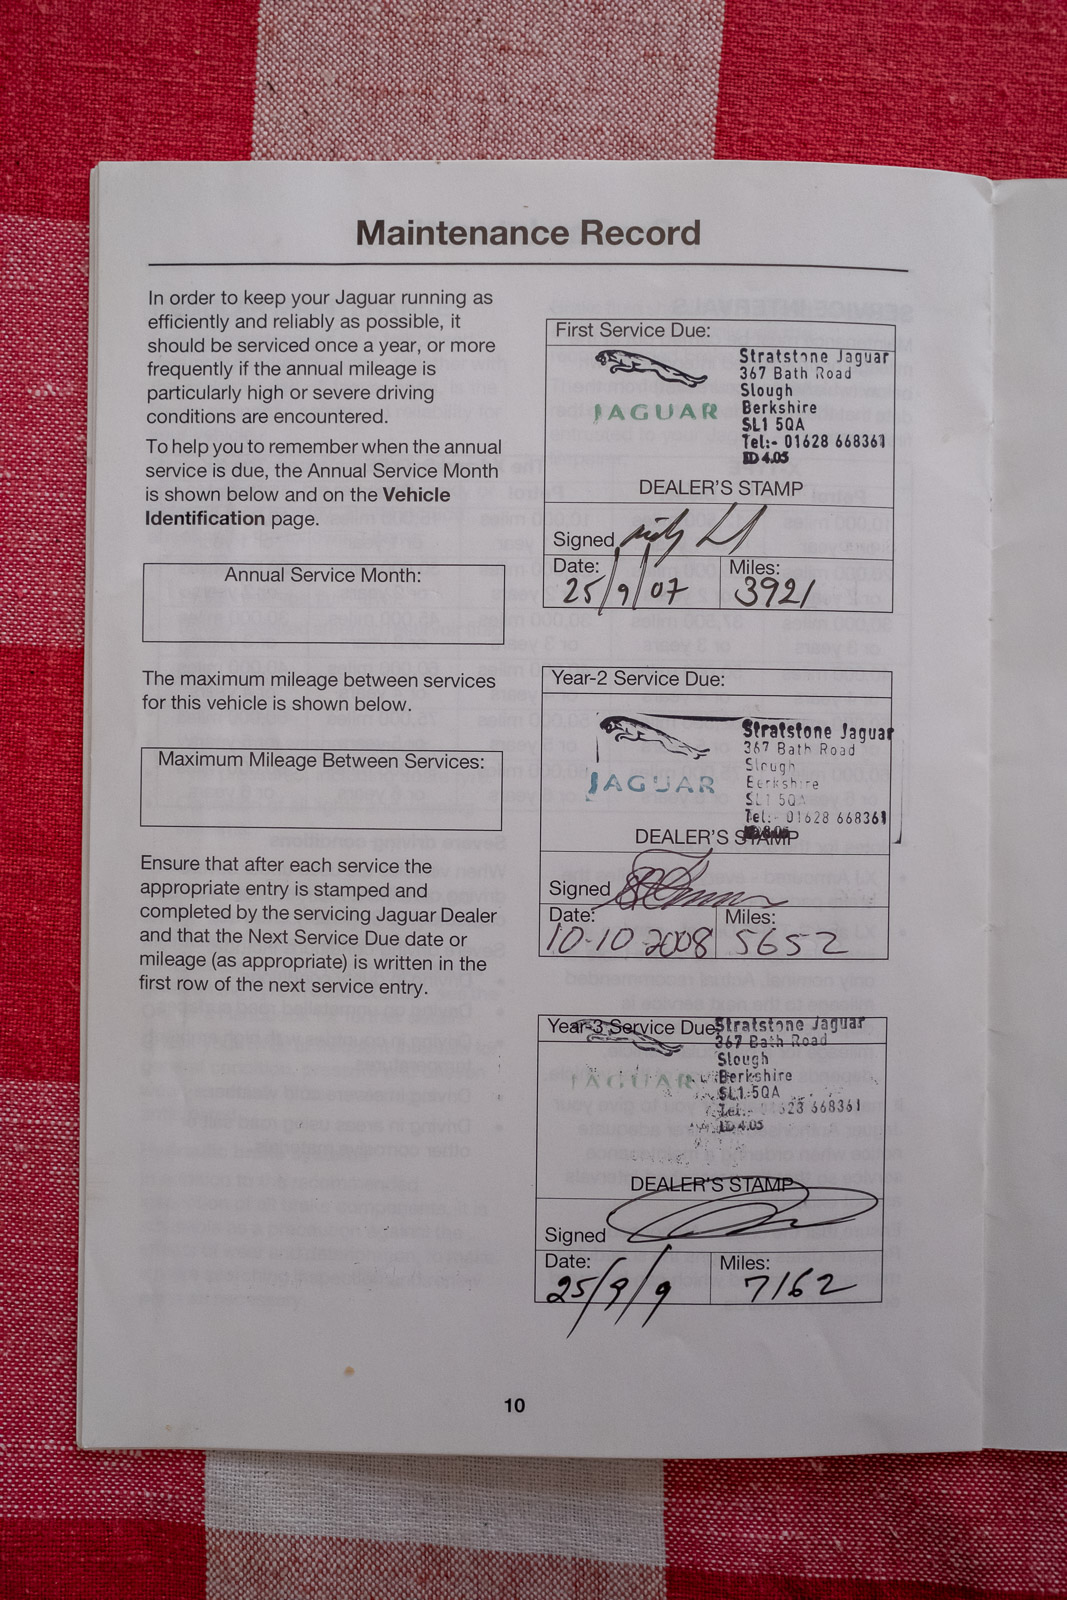 Maintenance Record
In order to keep your Jaguar running as
efficiently and reliably as possible, it
should be serviced once a year, or more
frequently if the annual mileage is
particularly high or severe driving
conditions are encountered.
To help you to remember when the annual
service is due, the Annual Service Month
is shown below and on the Vehicle
Identification page.
Annual Service Month:
The maximum mileage between services
for this vehicle is shown below.
Maximum Mileage Between Services:
Ensure that after each service the
appropriate entry is stamped and
completed by the servicing Jaguar Dealer
and that the Next Service Due date or
mileage (as appropriate) is written in the
first row of the next service entry.
First Service Due:
JAGUAR
Stratstone Jaguar
367 Bath Road
Slough
Berkshire
SL1 5QA
Tel:- 01628 668361
ID 4.05
DEALER'S STAMP
Signed
Date: Miles:
25/9/07 3921
Year-2 Service Due:
JAGUAR
Stratstone Jaguar
367 Bath Road
Slough
Berkshire
SL1 5QA
Tel:- 01628 668361
DEALER'S STAMP
Signed
Date: Miles:
10-10 2008 5652
Year-3 Service Due:
JAGUAR
Stratstone Jaguar
367 Bath Road
Slough
Berkshire
SL1 5QA
Tel:- 01628 668361
ID 4.05
DEALER'S STAMP
Signed
Date: Miles:
25/9/9 7162
10